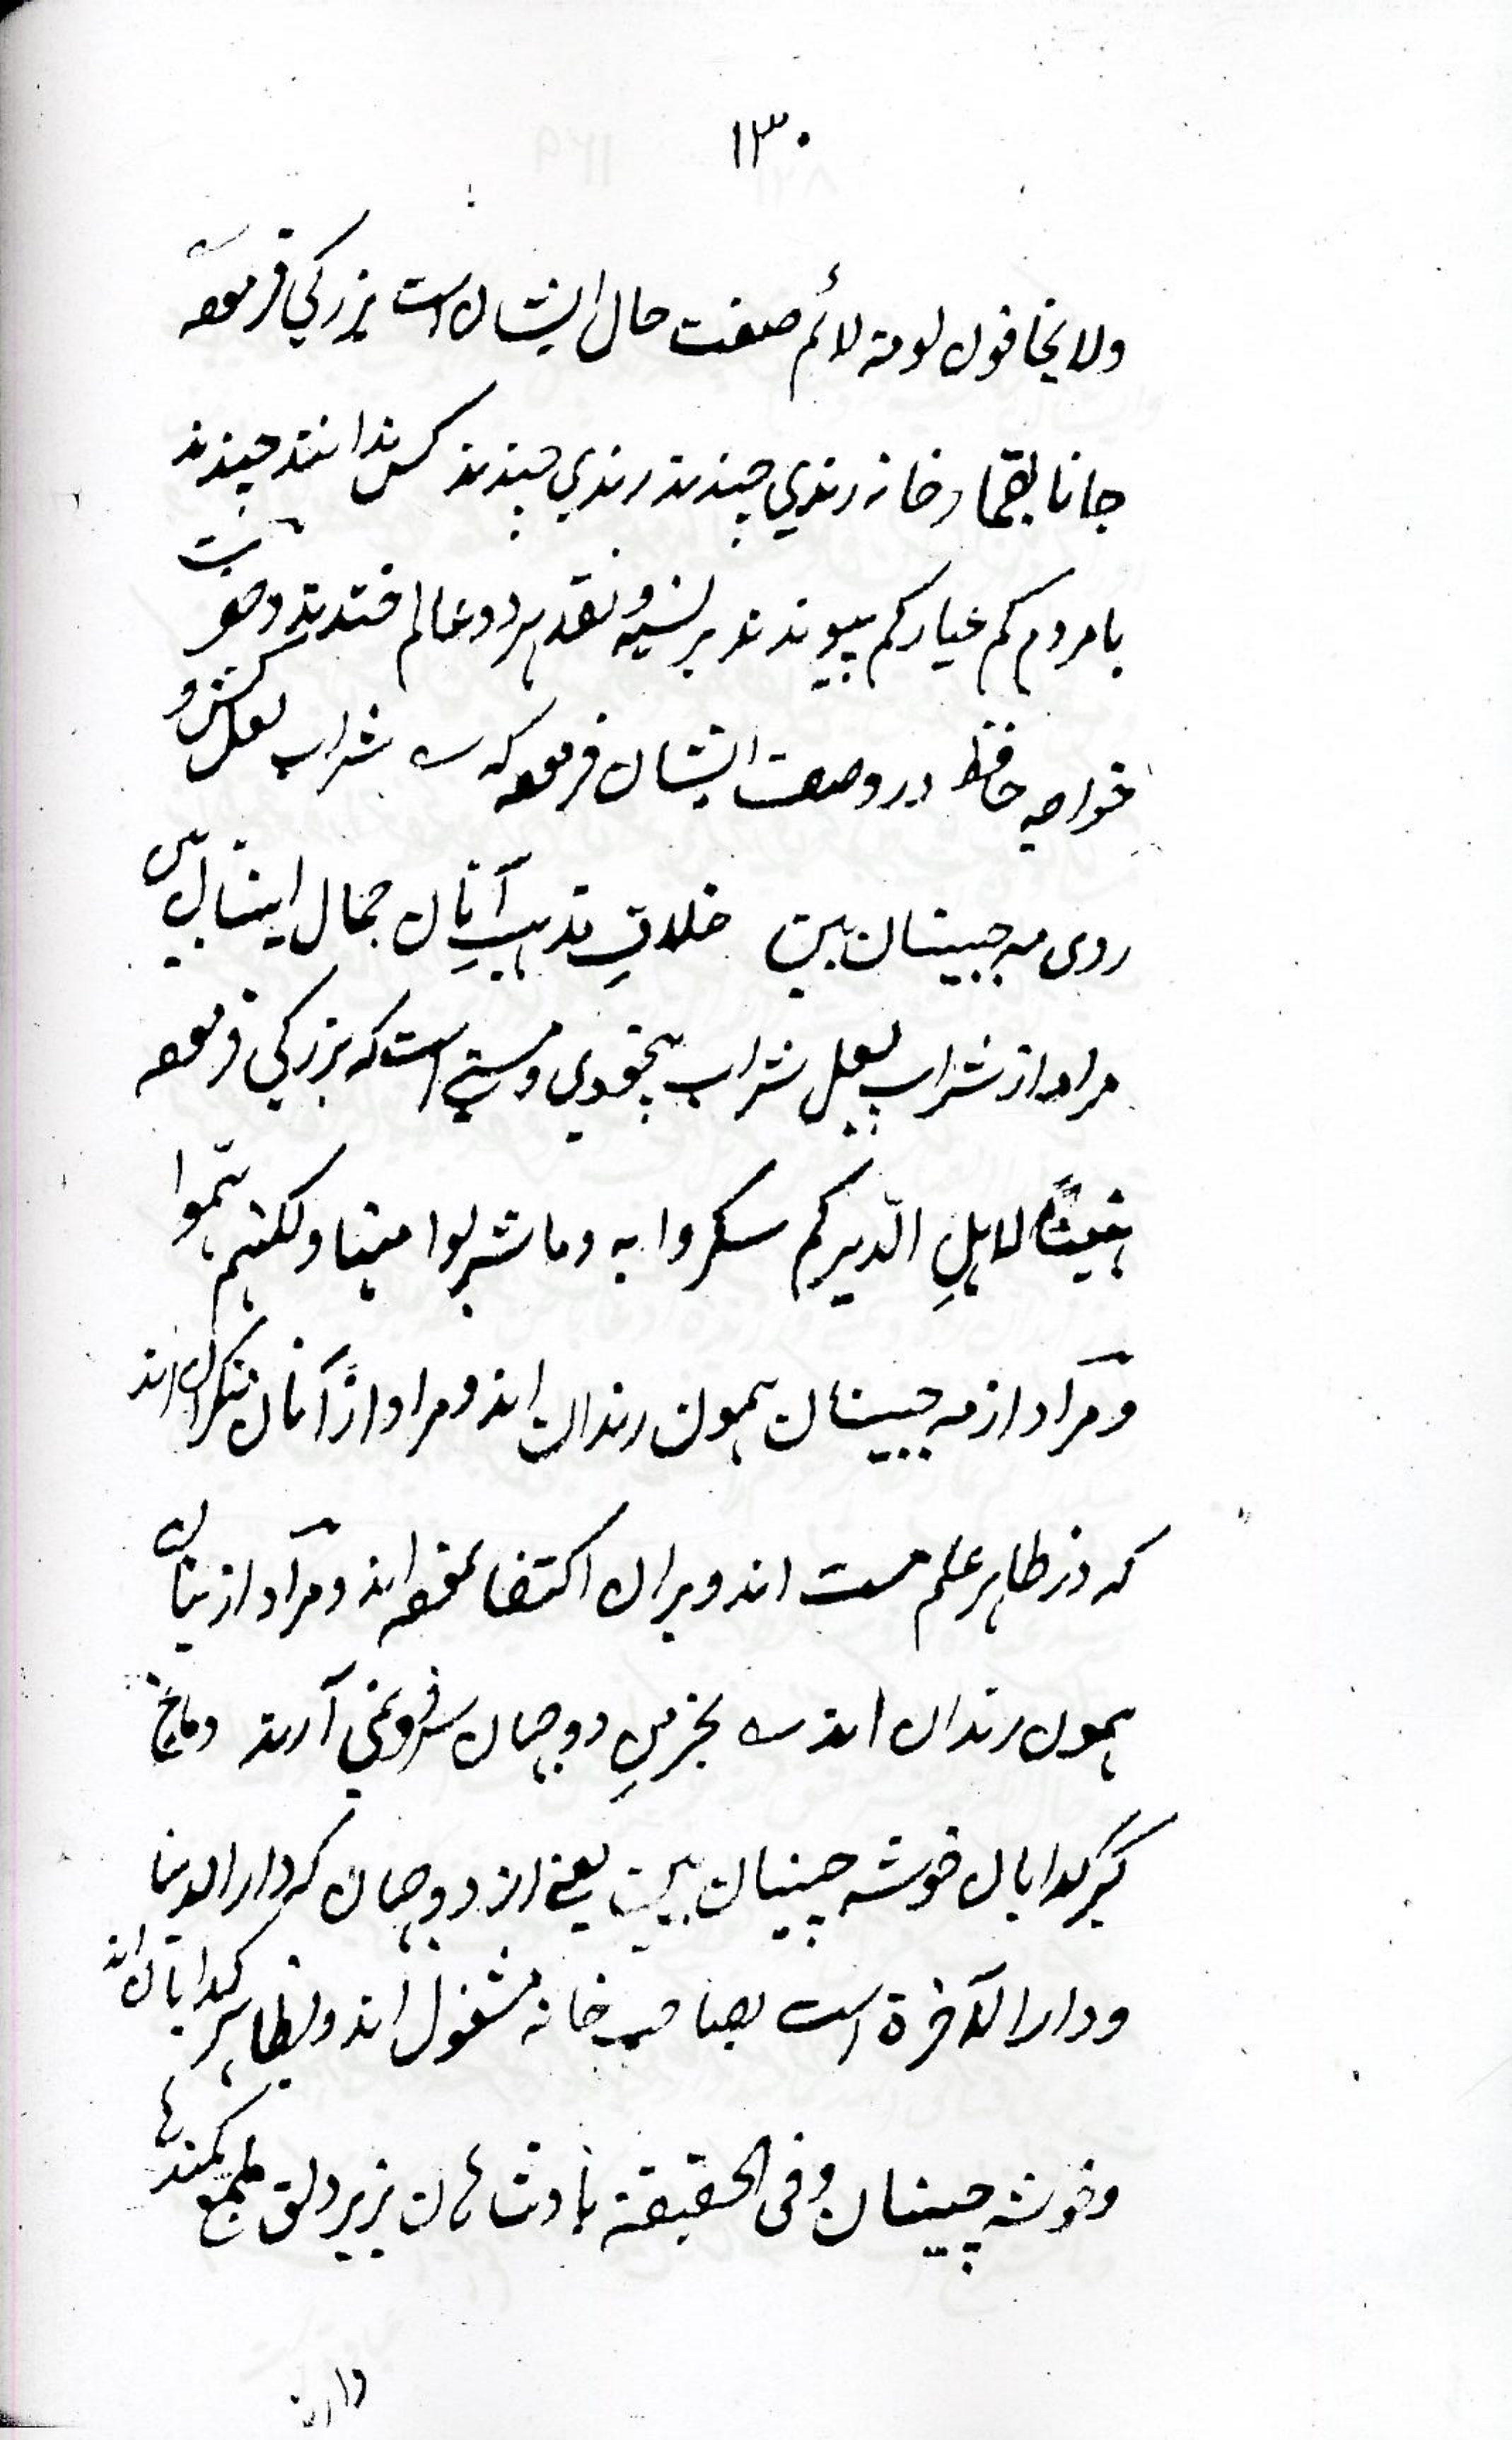 ۱۳۰
ولا یخافون لومة لائم صفت حال ایشان است بزرکي فرموده
جانا بقمار خانه رندي چندند رندي چندند کس نداند چندند
با مردم کم عیار کم پیوندند بر نسیه و نقد هر دو عالم خندند و حضرت
خواجه حافظ در وصف ایشان فرموده که سه شراب لعل کش و
روی مه جبینان بین خلافِ مذهبِ آنان جمال اینان بین
مراد از شراب لعل شراب بیخودي و مستی است که بزرکي فرموده
هنیئًا لاهلِ الدّیر کم سکروا به وما شربوا منها ولکنهم همّوا
و مراد از مه جبینان همون رندان اند و مراد از آنان منکران اند
که در ظاهر علم مست اند و بران اکتفا نموده اند و مراد از اینان
همون رندان اند سه بخرمنِ دو جهان سر فرو نمي آرند دماغ
کبر کدایان خوشه چینان بین یعنی از دو جهان که دار الدنیا
و دار الآخرة است بصاحب خانه مشغول اند و بظاهر کدایان اند
و خوشه چینان و فی الحقیقة بادشاهان بزیر دلق ملمع کمندها
دارند